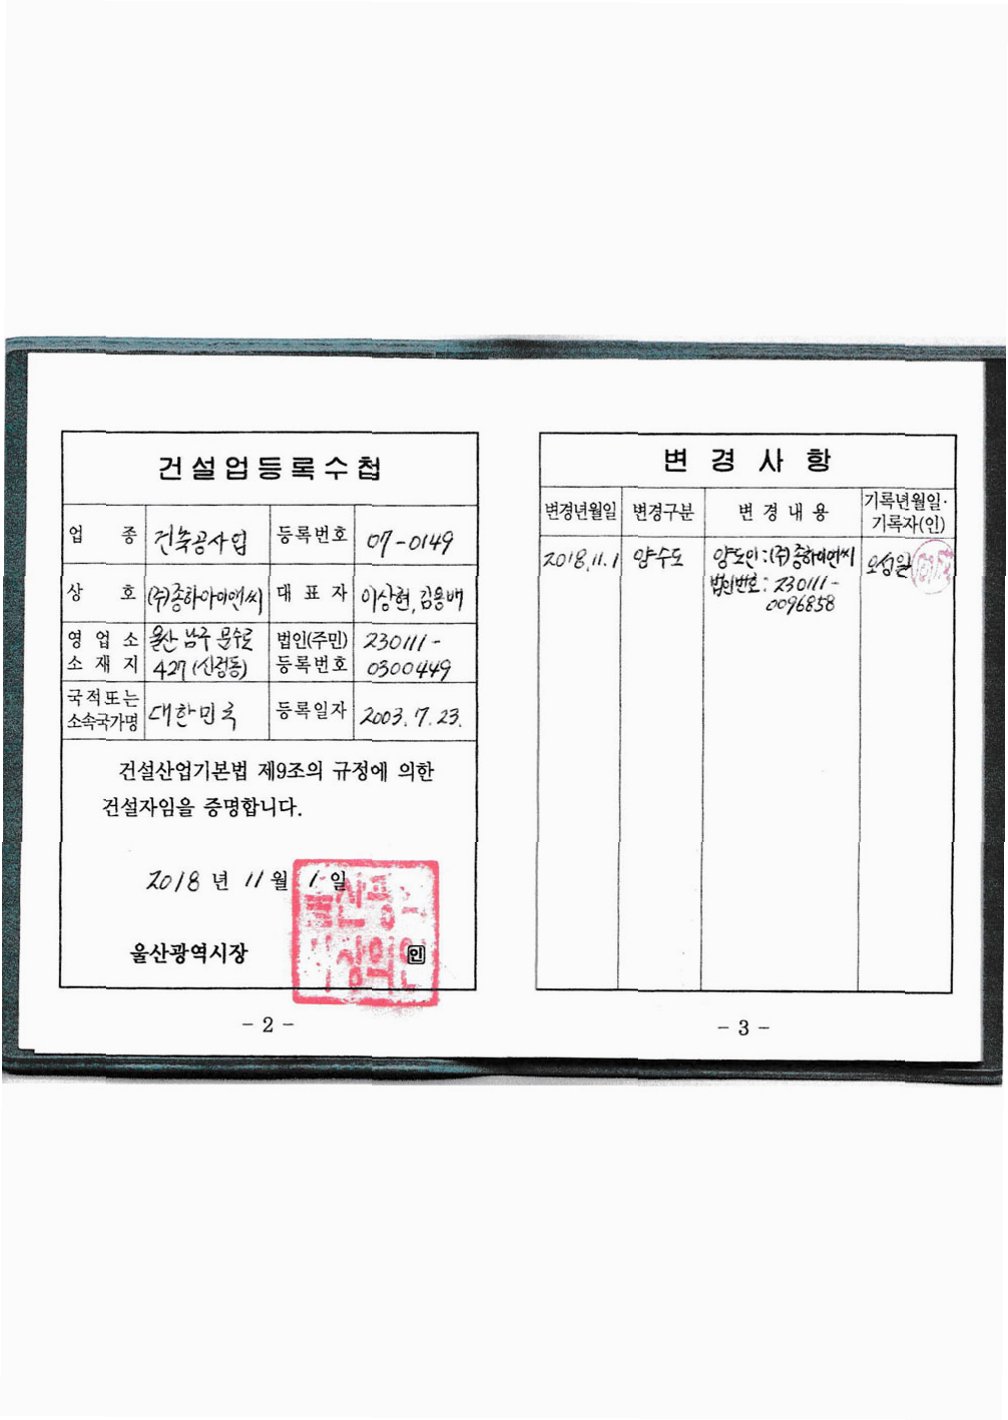 건설업등록수첩
업 종 건축공사업 등록번호 07-0149
상 호 (주)종하아이앤씨 대 표 자 이상현, 김용배
영 업 소 울산 남구 문수로 법인(주민) 230111-
소 재 지 427 (신정동) 등록번호 0300449
국적또는
소속국가명 대한민국 등록일자 2003. 7. 23.
건설산업기본법 제9조의 규정에 의한
건설자임을 증명합니다.
2018 년 11 월 1 일
울산광역시장 인
- 2 -
변 경 사 항
변경년월일 변경구분 변 경 내 용 기록년월일·
기록자(인)
2018.11.1 양수도 양도인 : (주)종하이앤씨 오성일
법인번호 : 230111-
0096858
- 3 -